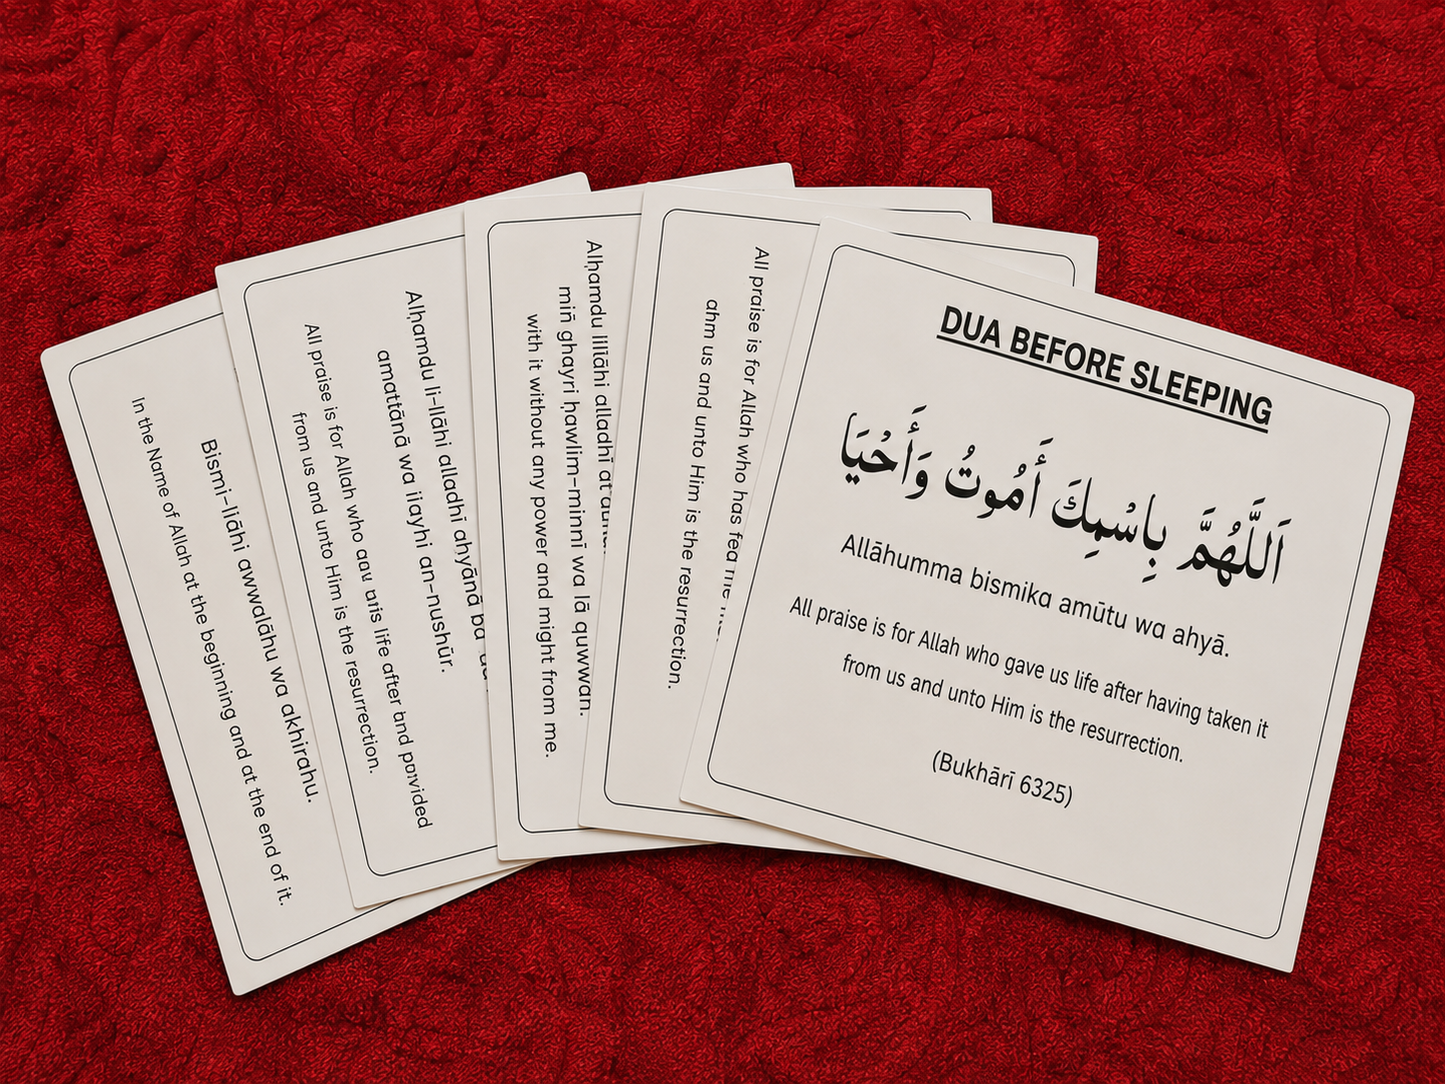 DUA BEFORE SLEEPING
اَللَّهُمَّ بِاسْمِكَ أَمُوتُ وَأَحْيَا
Allāhumma bismika amūtu wa ahyā.
All praise is for Allah who gave us life after having taken it
from us and unto Him is the resurrection.
(Bukhārī 6325)
All praise is for Allah who has fed me
ahm us and unto Him is the resurrection.
Alḥamdu lillāhi alladhī
min̄ ghayri ḥawlim-minnī wa lā quwwan.
with it without any power and might from me.
Alḥamdu li-llāhi alladhī aḥyānā ba
amattānā wa iiayhi an-nushūr.
All praise is for Allah who life after bnd poıvided
from us and unto Him is the resurrection.
Bismi-liāhi awwalāhu wa akhirahu.
In the Name of Allah at the beginning and at the end of it.